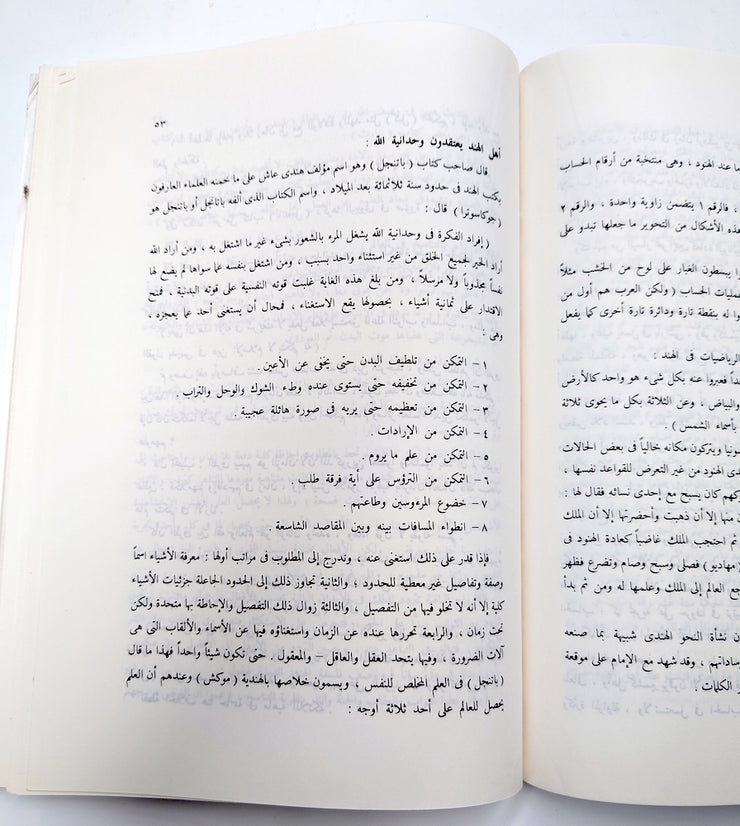 ٥٣
أهل الهند يعتقدون وحدانية الله :
قال صاحب كتاب ( باتنجل ) وهو اسم مؤلف هندى عاش على ما خمنه العلماء العارفون
بكتب الهند فى حدود سنة ثلاثمائة بعد الميلاد ، واسم الكتاب الذى ألفه باتانجل أو باتنجل هو
( جوكاسوترا ) قال :
( إفراد الفكرة فى وحدانية الله يشغل المرء بالشعور بشىء غير ما اشتغل به ، ومن أراد الله
أراد الخير لجميع الخلق من غير استثناء واحد بسبب ، ومن اشتغل بنفسه عما سواها لم يضع لها
نفساً مجذوباً ولا مرسلاً ، ومن بلغ هذه الغاية غلبت قوته النفسية على قوته البدنية ، فمنح
الاقتدار على ثمانية أشياء ، بحصولها يقع الاستغناء ، فمحال أن يستغنى أحد عما يعجزه ،
وهى :
١ – التمكن من تلطيف البدن حتى يخفى عن الأعين .
٢ – التمكن من تخفيفه حتى يستوى عنده وطء الشوك والوحل والتراب .
٣ – التمكن من تعظيمه حتى يريه فى صورة هائلة عجيبة .
٤ – التمكن من الإرادات .
٥ – التمكن من علم ما يروم .
٦ – التمكن من الترؤس على أية فرقة طلب .
٧ – خضوع المرءوسين وطاعتهم .
٨ – انطواء المسافات بينه وبين المقاصد الشاسعة .
فإذا قدر على ذلك استغنى عنه ، وتدرج إلى المطلوب فى مراتب أولها : معرفة الأشياء اسماً
وصفة وتفاصيل غير معطية للحدود ؛ والثانية تجاوز ذلك إلى الحدود الجاعلة جزئيات الأشياء
كلية إلا أنه لا تخلو فيها من التفصيل ، والثالثة زوال ذلك التفصيل والإحاطة بها متحدة ولكن
تحت زمان ، والرابعة تحررها عنده عن الزمان واستغناؤه فيها عن الأسماء والألقاب التى هى
آلات الضرورة ، وفيها يتحد العقل والعاقل – والمعقول . حتى تكون شيئاً واحداً فهذا ما قال
( باتنجل ) فى العلم المخلص للنفس ، ويسمون خلاصها بالهندية ( موكش ) وعندهم أن العلم
يحصل للعالم على أحد ثلاثة أوجه :
ما عند الهنود ، وهى منتخبة من أرقام الحساب
، فالرقم ١ يتضمن زاوية واحدة ، والرقم ٢
هذه الأشكال من التحوير ما جعلها تبدو على
يبسطون الغبار على لوح من الخشب مثلاً
عمليات الحساب ( ولكن العرب هم أول من
له بنقطة تارة ودائرة تارة أخرى كما يفعل
الرياضيات فى الهند :
فعبروا عنه بكل شىء هو واحد كالأرض
والبياض ، وعن الثلاثة بكل ما يحوى ثلاثة
بأسماء الشمس ) .
ويتركون مكانه خالياً فى بعض الحالات
الهنود من غير التعرض للقواعد نفسها ،
كان يسبح مع إحدى نسائه فقال لها :
منها إلا أن ذهبت وأحضرتها إلا أن الملك
ثم احتجب الملك غاضباً كعادة الهنود فى
( مهاديو ) فصلى وسبح وصام وتضرع فظهر
العالم إلى الملك وعلمها له ومن ثم بدأ
نشأة النحو الهندى شبيهة بما صنعه
، وقد شهد مع الإمام على موقعة
الكلمات :